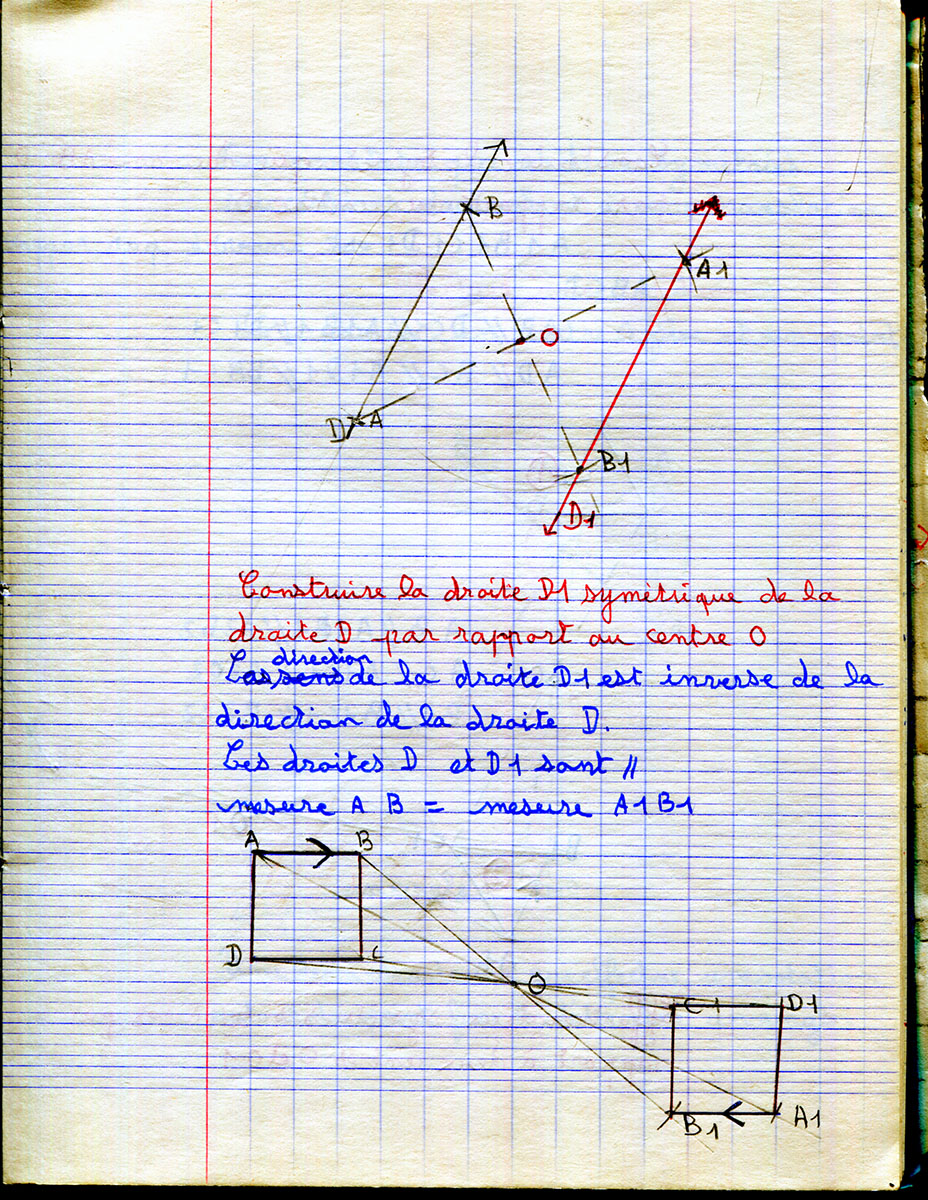 B
A1
O
D A
B1
D1
Construire la droite D1 symétrique de la
droite D par rapport au centre O
direction
La sens de la droite D1 est inverse de la
direction de la droite D.
Les droites D et D1 sont //
mesure A B = mesure A1B1
A B
D C
O
C1 D1
B1 A1